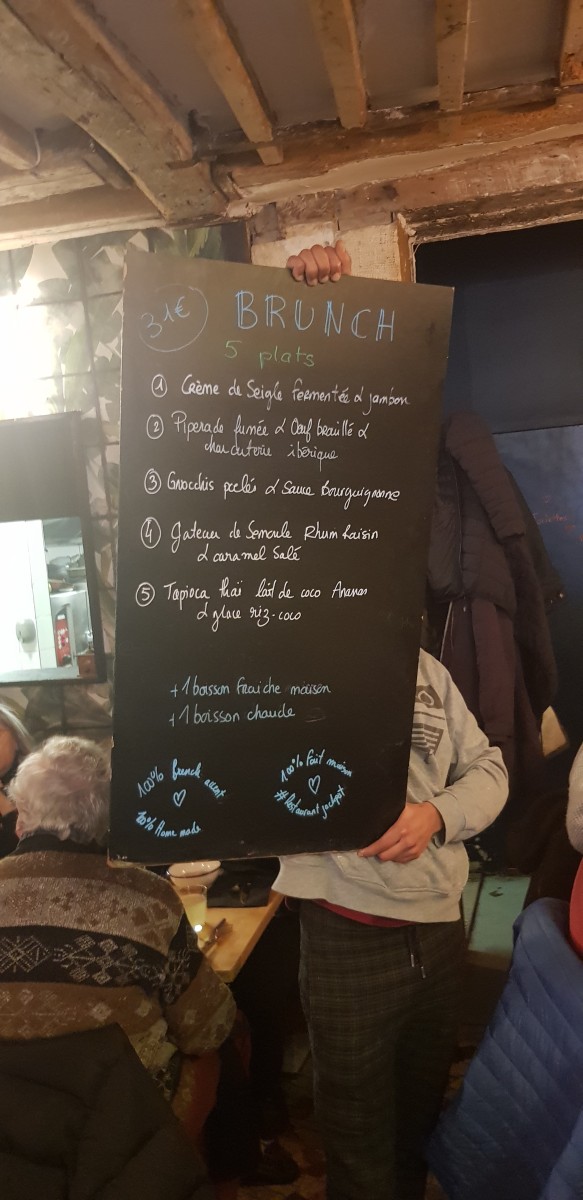 31€
BRUNCH
5 plats
① Crème de Seigle fermentée & jambon
② Piperade fumée & Oeuf brouillé &
charcuterie ibérique
③ Gnocchis poelés & Sauce Bourguignonne
④ gateau de Semoule Rhum Raisin
& caramel Salé
⑤ Tapioca thaï lait de coco Ananas
& glace riz-coco
+1 boisson fraiche maison
+1 boisson chaude
100% french accent
♡
100% Home made
100% fait maison
♡
#Restaurant jackpot